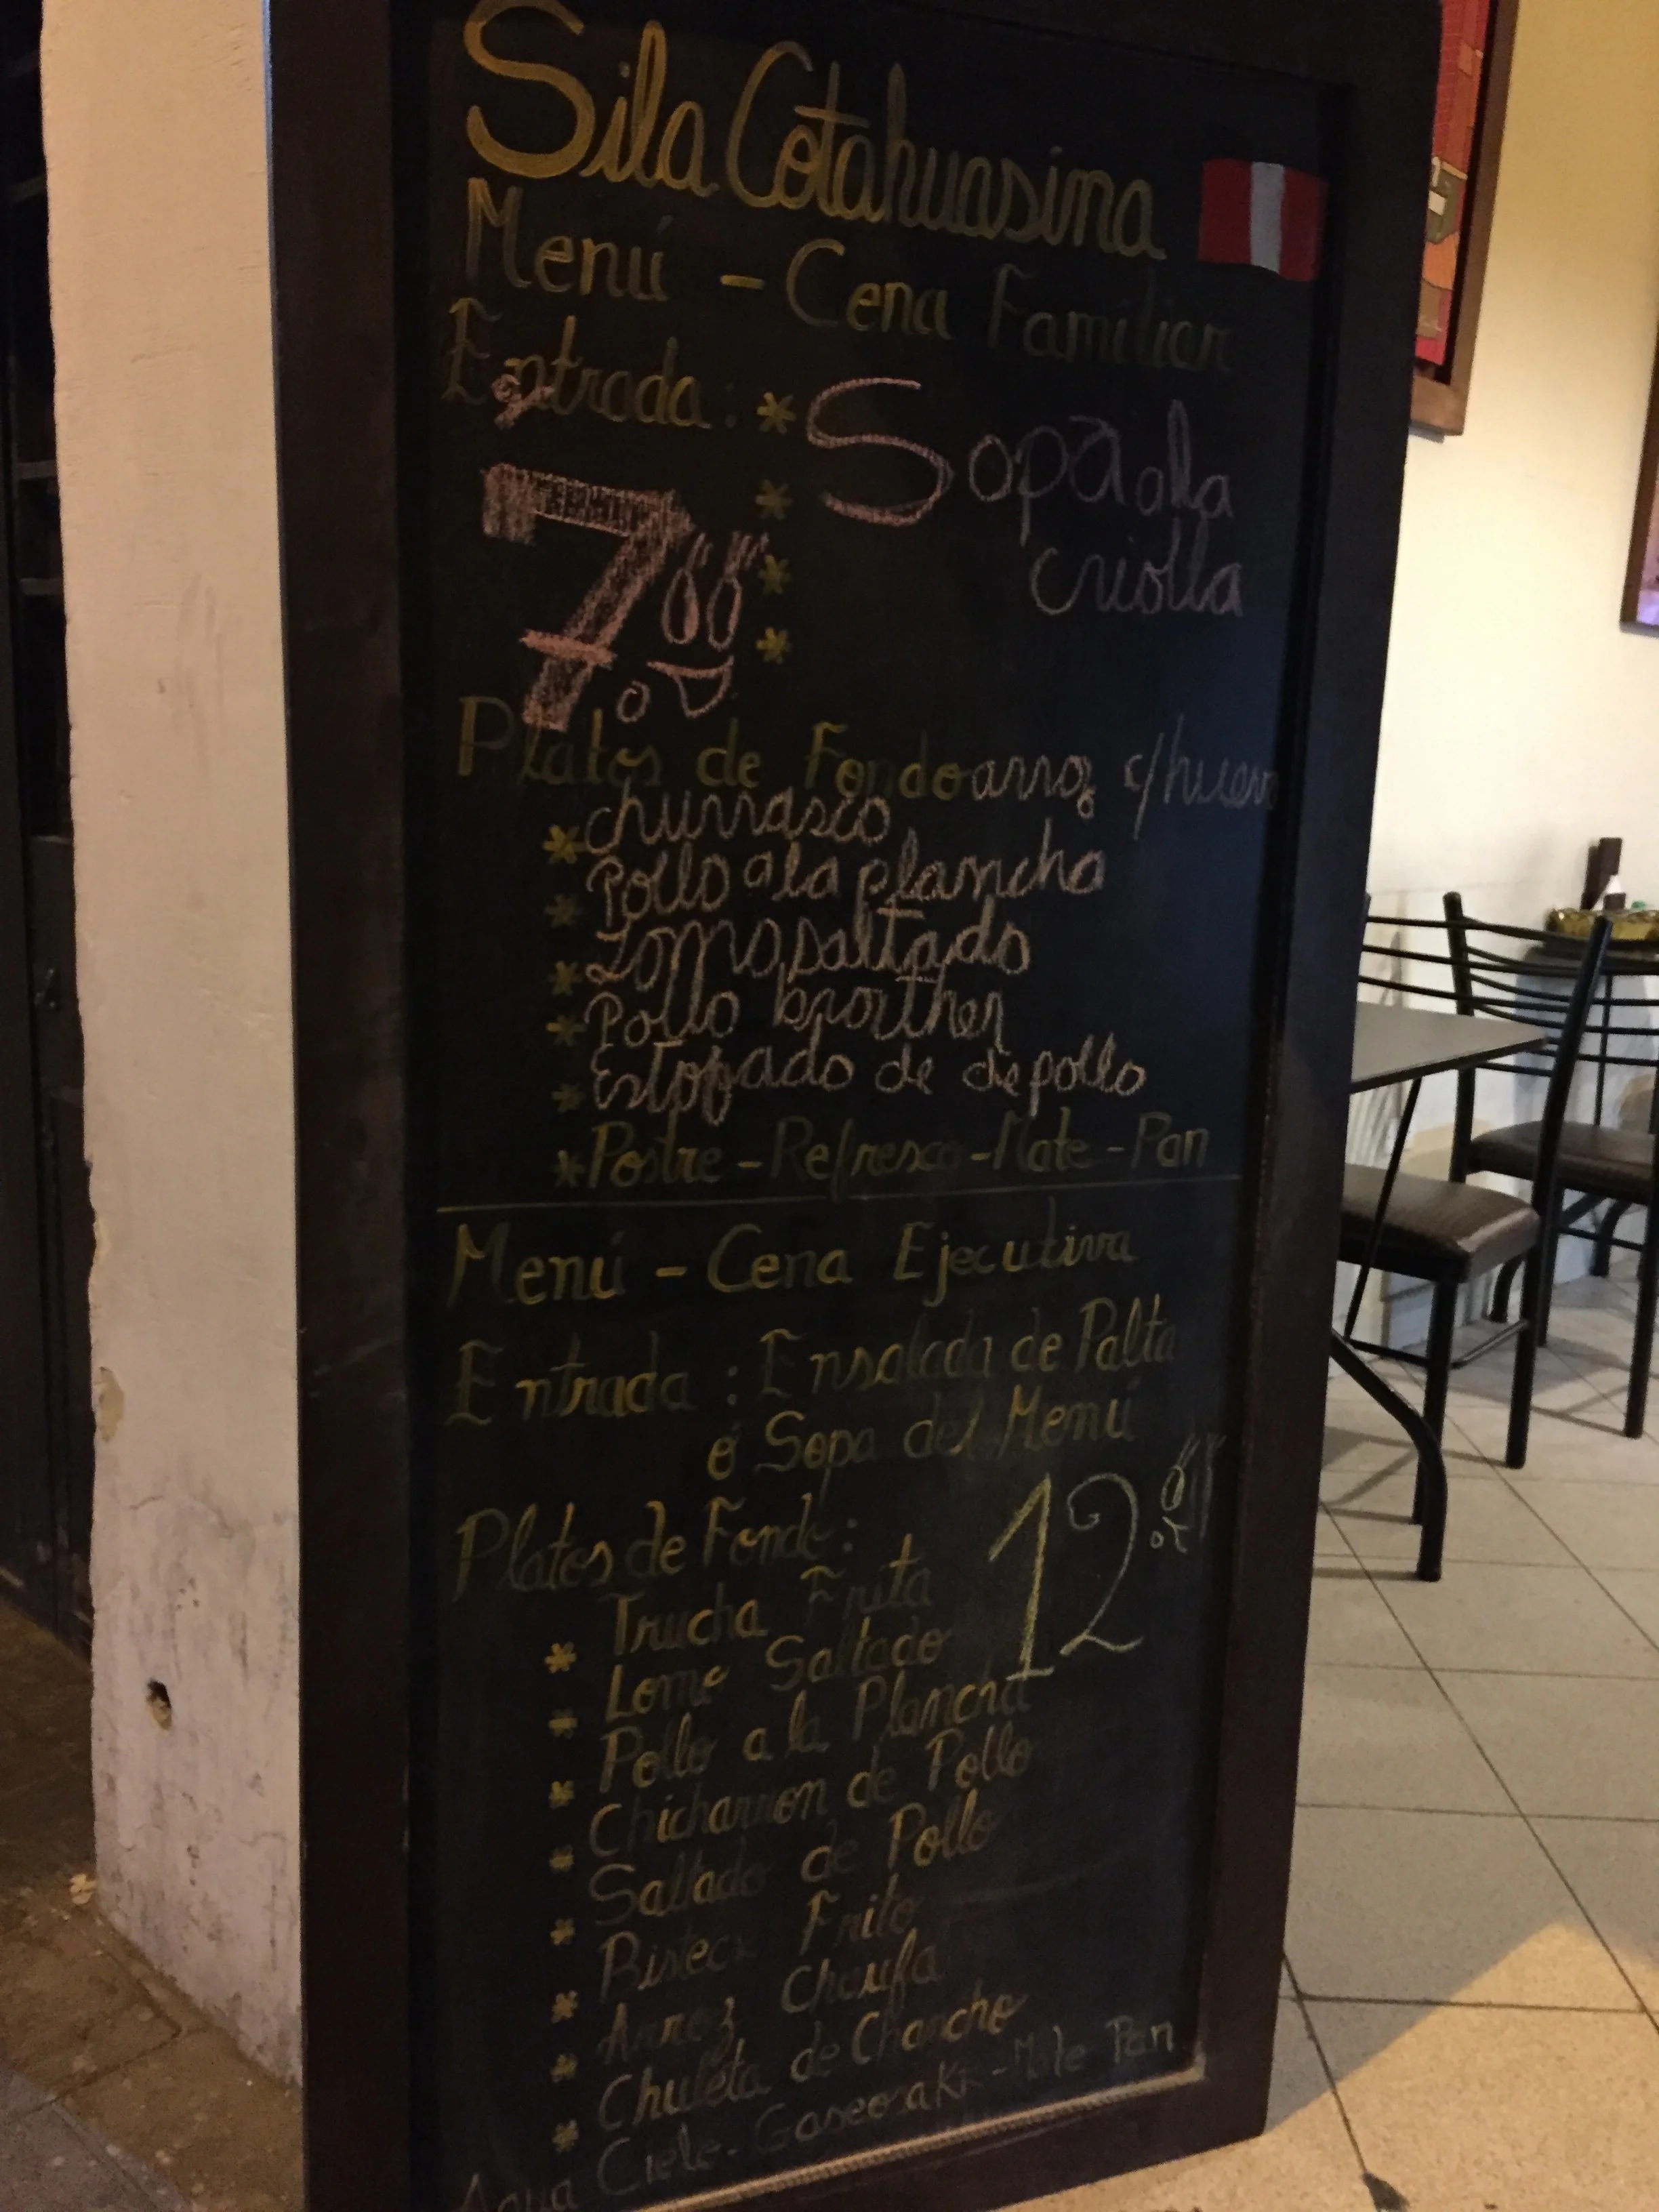 Sila Cotahuasina
Menú - Cena Familiar
Entrada: * Sopa a la
criolla
7.00
Platos de Fondo arroz c/huevo
* churrasco
* Pollo a la plancha
* Lomo saltado
* Pollo
* Estofado de de pollo
* Postre - Refresco - Mate - Pan
Menú - Cena Ejecutiva
Entrada: Ensalada de Palta
ó Sopa del Menú
12.00
Platos de Fondo:
* Trucha Frita
* Lomo Saltado
* Pollo a la Plancha
* Chicharron de Pollo
* Saltado de Pollo
* Bisteck Frito
* Arroz Chaufa
* Chuleta de Chancho
Agua Cielo - Gaseosa KR - Mate Pan